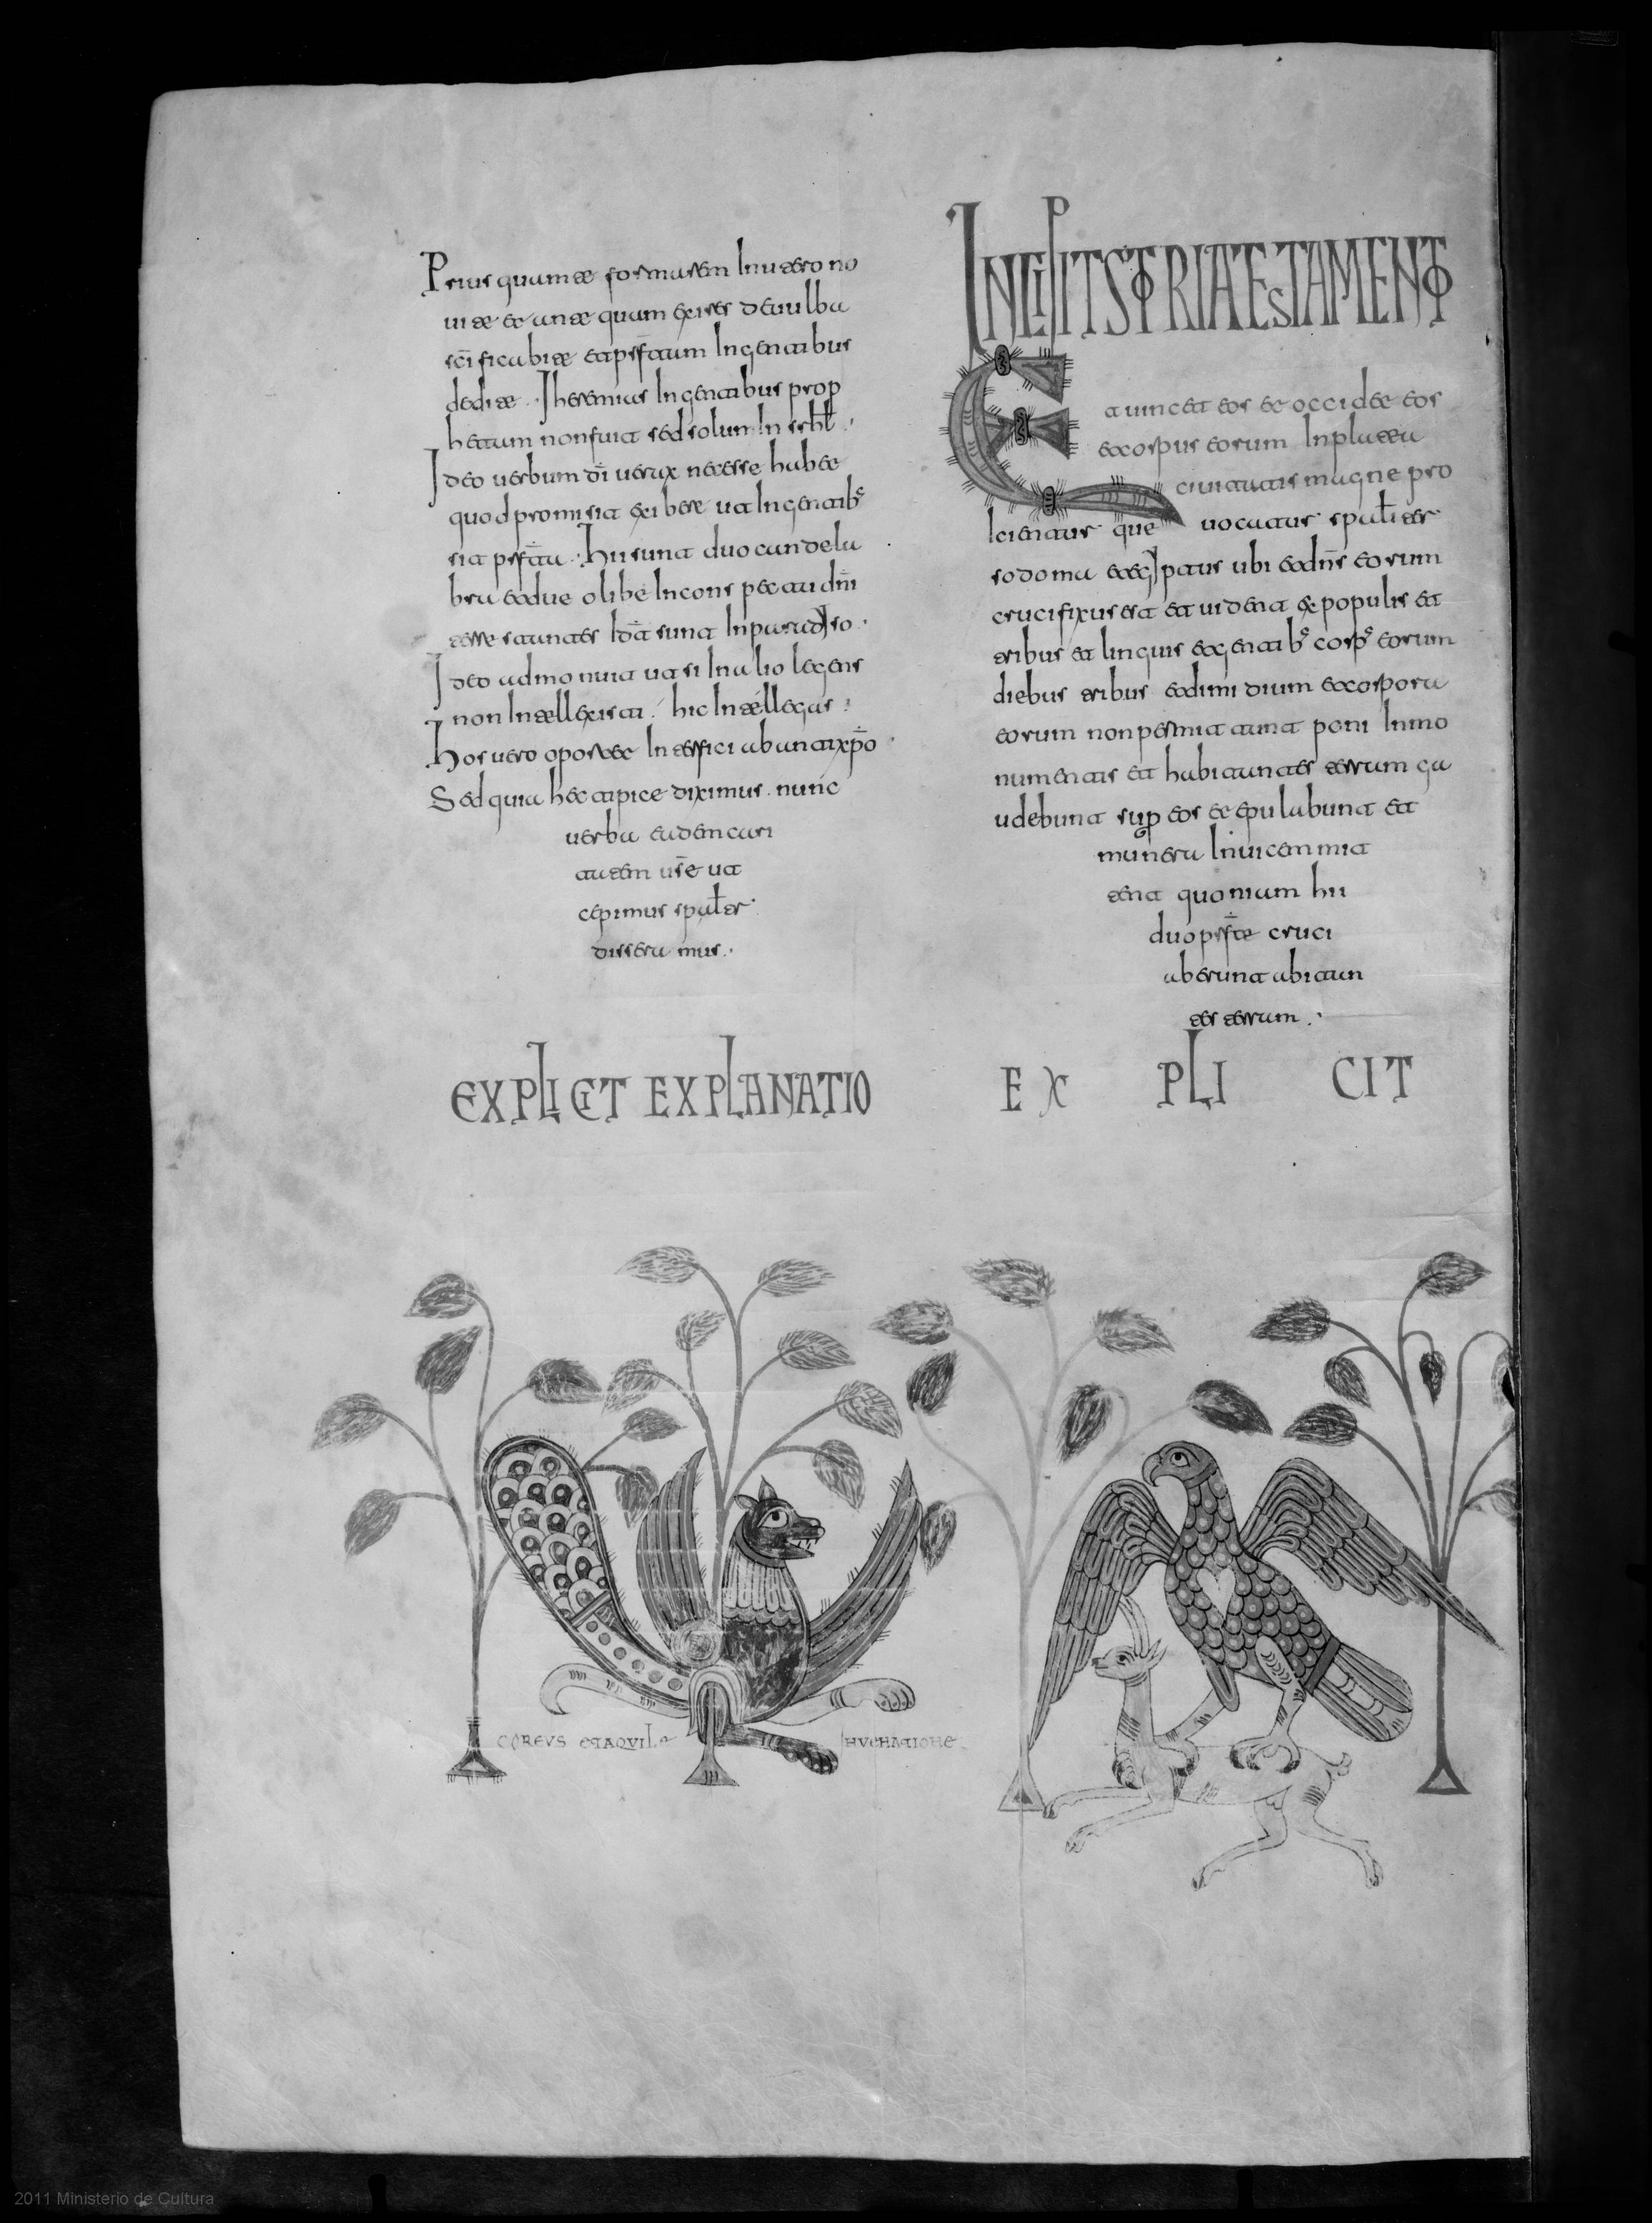 Prius quam te formarem in utero no
ui te et ante quam exires de uulba
scificabi te et prfetam In gentibus
dedi te. Iheremias In gentibus prop
hetam non fuit sed solum In srhl.
Ideo uerbum di uerax necesse habet
quod promisit exibere ut In gentibs
sit prfeta. hii sunt duo candela
bra et due olibe In conspectu dmi
terre stantes Id est sunt In paradiso.
Ideo admonuit ut si In alio legens
non Intellexisti. hic Intellegas.
hos uero oportet Interfici ab antixpo
Sed quia hec apice diximus. nunc
uerba eadem cari
tatem urse ut
cepimus spulter
disseramus.
EXPLICIT EXPLANATIO
INCIPIT STORIA TESTAMENTO
Et uincet eos et occidet eos
et corpus eorum In platea
ciuitatis magne pro
Icientur que uocatur spulter
sodoma et egiptus ubi et dns eorum
crucifixus est et uident ex populis et
tribus et linguis et gentibs corps eorum
diebus tribus et dimidium et corpora
eorum non permittunt poni In mo
numentis et habitantes terram ga
udebunt sup eos et epulabunt et
munera Inuicem mit
tent quoniam hii
duo prfete cruci
aberunt abitan
tes terram.
EX PLI CIT
COREUS ET AQUILA
IN VENATIONE